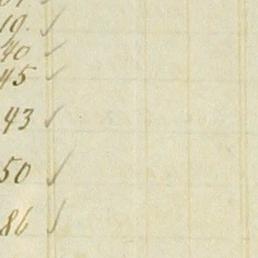 10. ✓
40 ✓
45 ✓
43 ✓
50 ✓
86 ✓